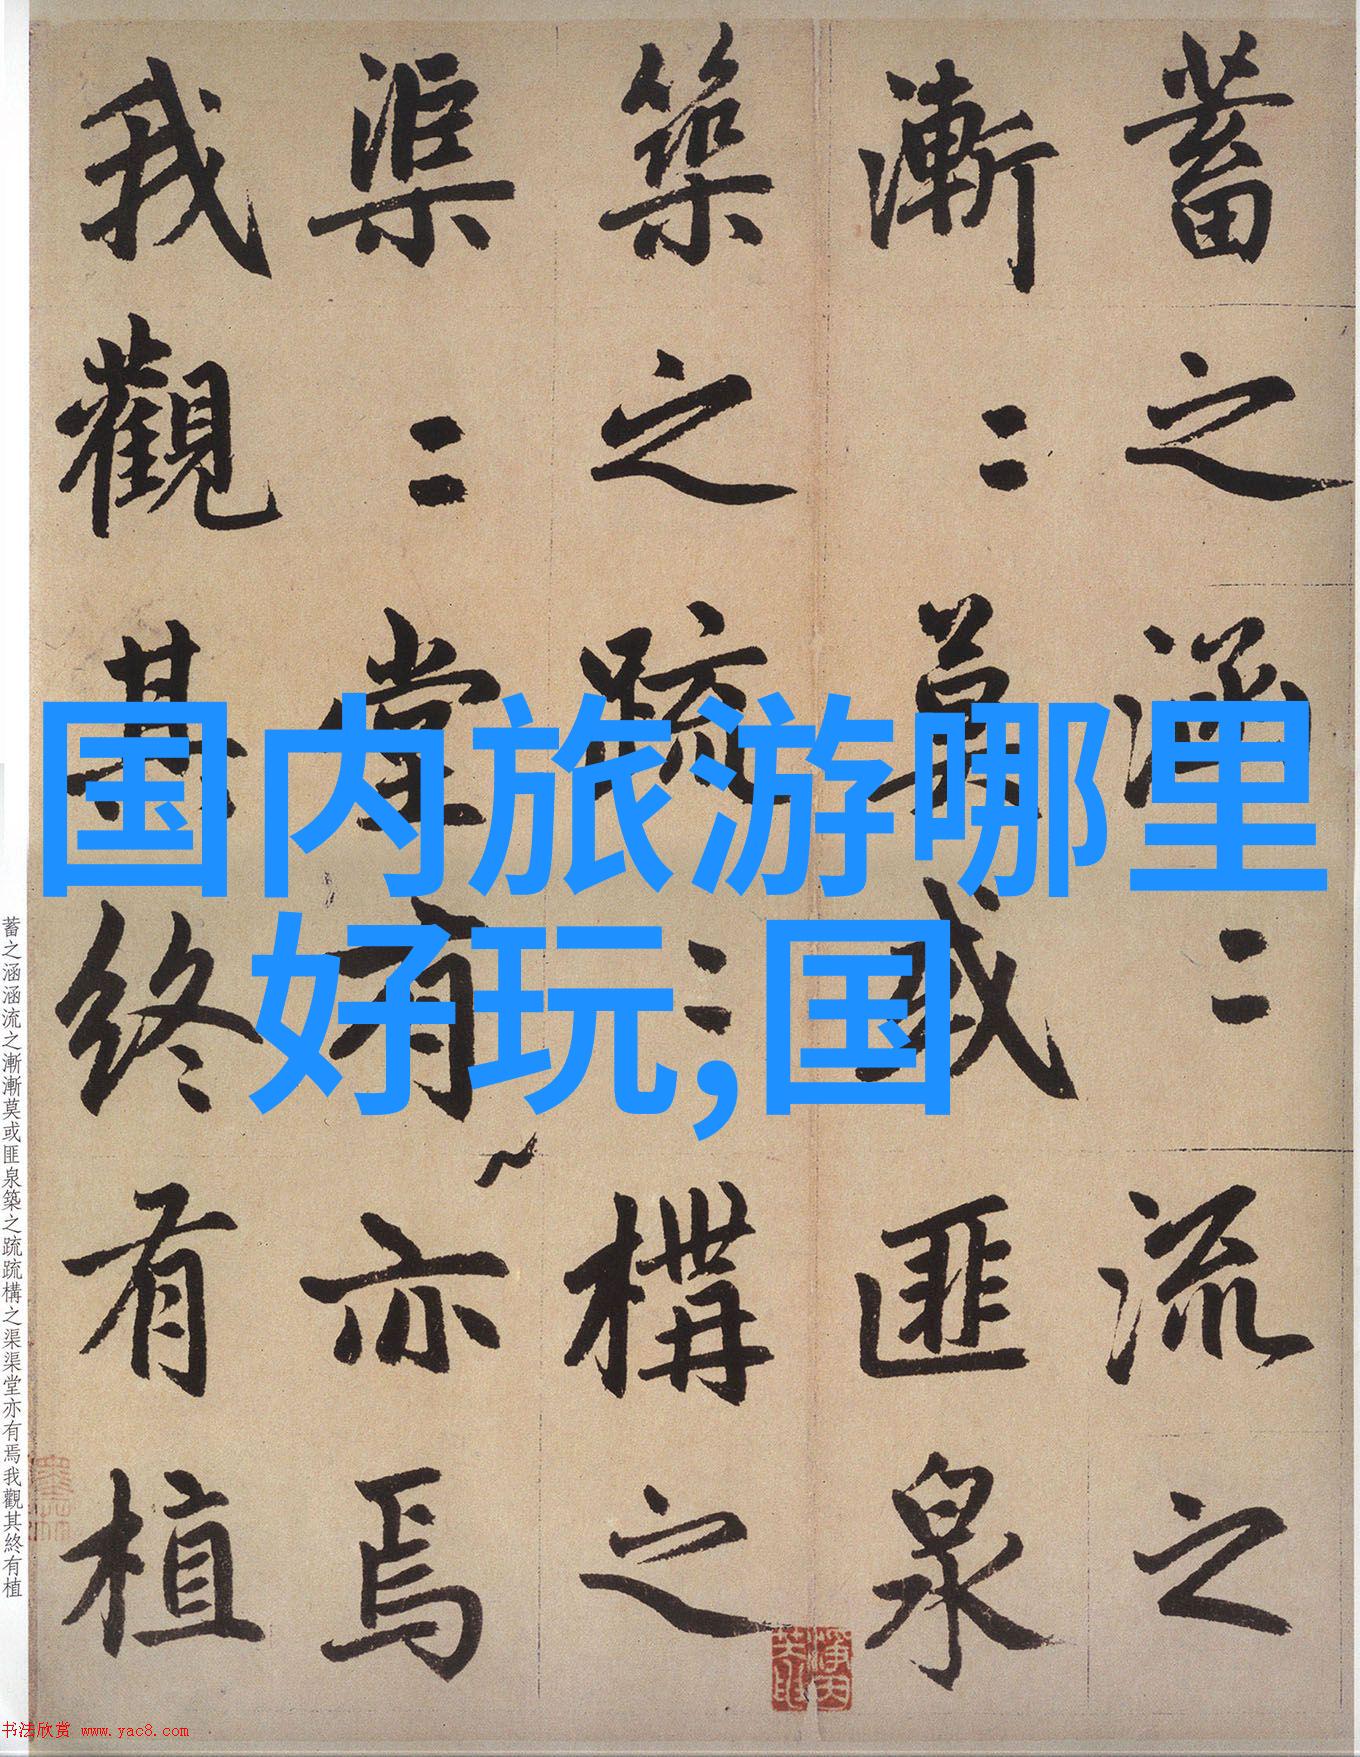 国内旅游哪里
好玩,国
蓄之涵〻流之
漸〻莫或匪泉
築之疏〻構之
渠〻堂有亦焉
我觀其終有植
蓄之涵涵流之漸漸莫或匪泉築之疏疏構之渠渠堂亦有焉我觀其終有植
书法欣赏 www.yac8.com